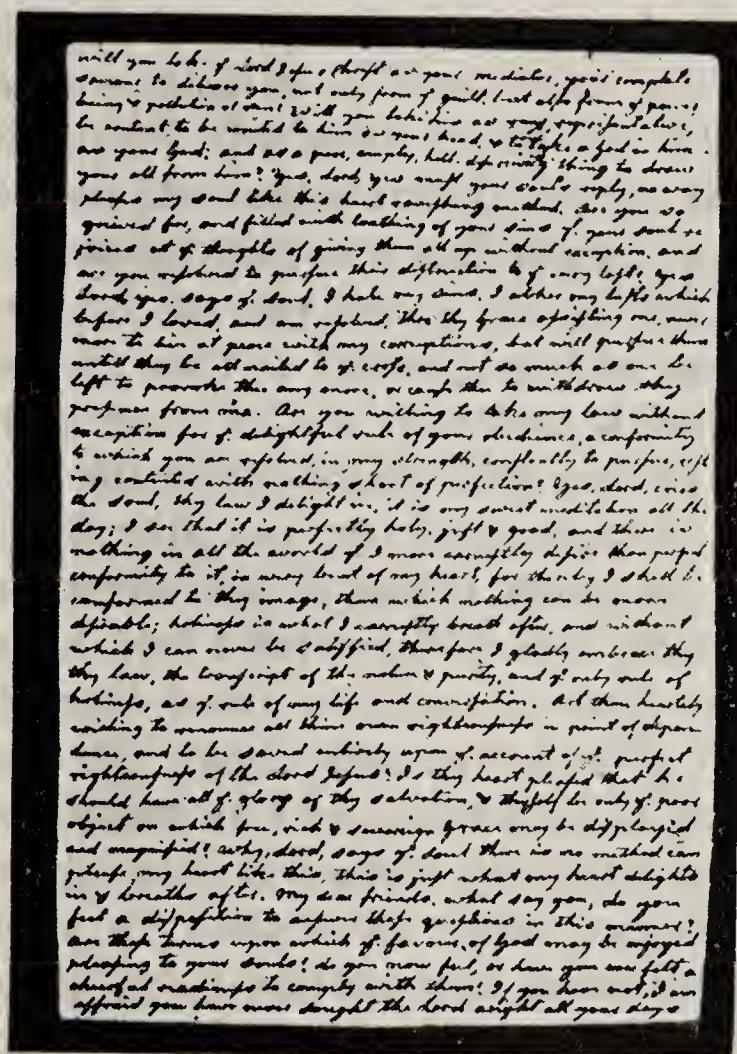 will you take yͤ Lord Jesus Christ as your mediator, your complete
saviour to deliver you, not only from yͤ guilt, but also from yͤ power,
being & pollution of sin? Will you take him as
be content to be united to him as your head, & to take a God in him
as your God; and as a poor, empty, hell-deserving thing to draw
your all from him? Yes, Lord, yes must your souls reply, no way
pleases my soul like this heart method. Are you so
grieved for, and filled with loathing of your sins yͭ your souls re
joices at yͤ thoughts of giving them all up without exception, and
are you resolved to pursue this to yͤ very last, yes
Lord, yes, says yͤ soul, I hate my sins, I abhor my lusts which
before I loved, and am resolved, thro thy Grace assisting me, never
more to live at peace with my corruptions, but will pursue them
untill they be all nailed to yͤ cross, and not so much as one be
left to provoke thee any more, or cause thee to withdraw thy
presence from me. Are you willing to take my law without
exception for yͤ delightful rule of your obedience, a conformity
to which you are resolved, in my strength, constantly to pursue, rest
ing contented with nothing short of perfection? Yes, Lord, cries
the soul, thy law I delight in, it is my sweet meditation all the
day; I see that it is perfectly holy, just & good, and there is
nothing in all the world yͭ I more earnestly desire than perfect
conformity to it, in every bent of my heart, for thereby I shall be
conformed to thy image, than which nothing can be more
desirable; holiness is what I earnestly breath after, and without
which I can never be satisfied, therefore I gladly embrace thy
thy law, the transcript of thy nature & purity, and yͤ only rule of
holiness, as yͤ rule of my life and conversation. Art thou heartily
willing to renounce all thine own righteousness in point of depen
dance, and to be saved entirely upon yͤ account of yͤ perfect
righteousness of the Lord Jesus? Is thy heart pleased that he
should have all yͤ glory of thy salvation, & thyself be only yͤ poor
object on which free, rich & sovereign Grace may be displayed
and magnified? Why, Lord, says yͤ soul there is no method can
please my heart like this, this is just what my heart delights
in & breaths after. My dear friends, what say you, do you
feel a disposition to answer these questions in this manner?
are these terms upon which yͤ favour of God may be enjoyed
pleasing to your souls? do you now feel, or have you ever felt a
chearful readiness to comply with them? If you have not, I am
affraid you have never sought the Lord aright all your days